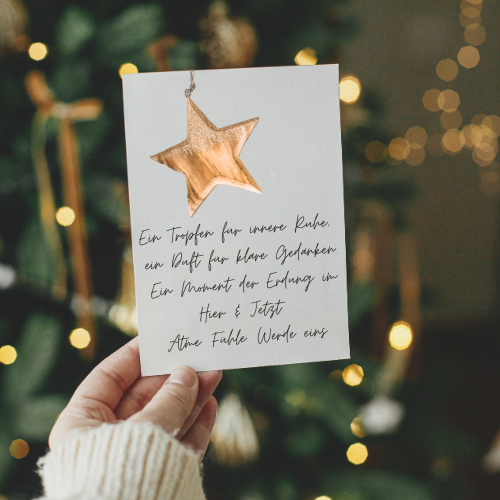 Ein Tropfen für innere Ruhe,
ein Duft für klare Gedanken
Ein Moment der Erdung im
Hier & Jetzt
Atme Fühle Werde eins